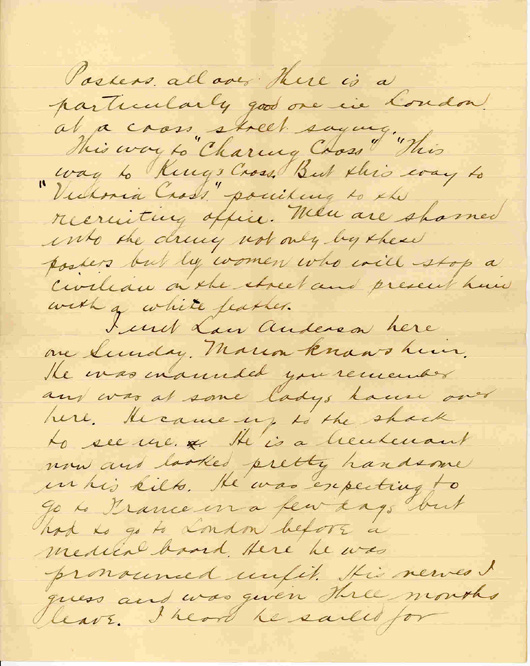 Posters all over. There is a
particularly good one in London
at a cross street saying.
This way to "Charing Cross" "This
way to Kings Cross. But this way to
"Victoria Cross," pointing to the
recruiting office. Men are shamed
into the army not only by these
posters but by women who will stop a
civilian on the street and present him
with a white feather.
I met Law Anderson here
on Sunday. Marion knows him.
He was wounded you remember
and was at some ladys house over
here. He came up to the shack
to see me. He is a lieutenant
now and looked pretty handsome
in his kilts. He was expecting to
go to France in a few days but
had to go to London before a
medical board. Here he was
pronounced unfit. His nerves I
guess and was given three months
leave. I heard he sailed for